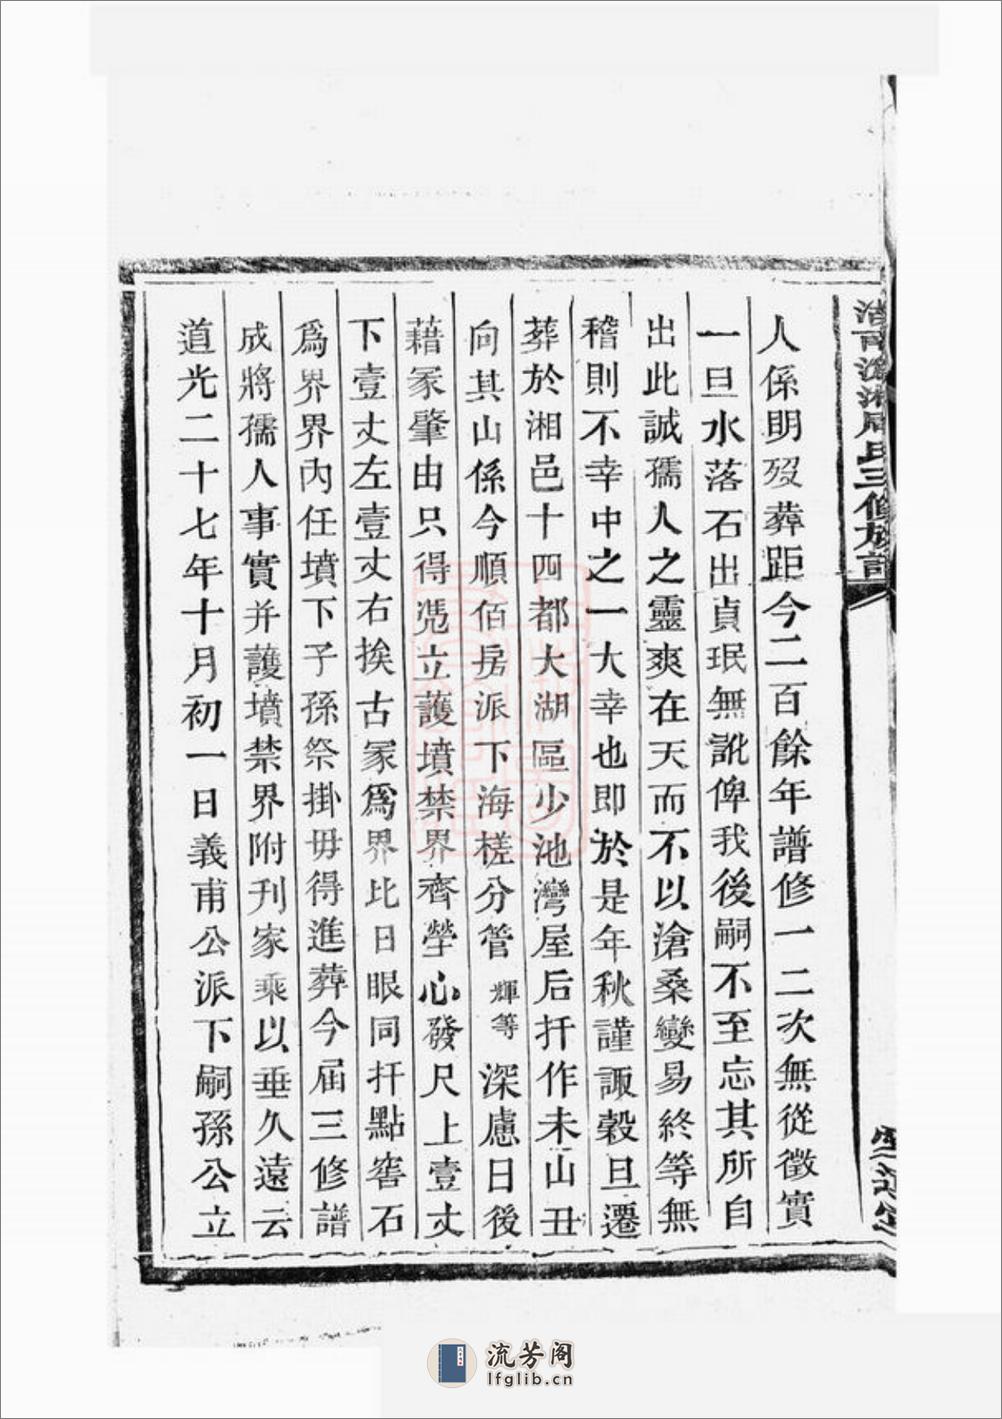 周氏三修族譜
人係明歿葬距今二百餘年譜修一二次無從徵實
一旦水落石出貞珉無訛俾我後嗣不至忘其所自
出此誠孺人之靈爽在天而不以滄桑變易終等無
稽則不幸中之一大幸也即於是年秋謹諏穀旦遷
葬於湘邑十四都大湖區少池灣屋后扞作未山丑
向其山係今順佰房派下海槎分管輝等深慮日後
藉冢肇由只得凴立護墳禁界齊塋心發尺上壹丈
下壹丈左壹丈右挨古冢爲界比日眼同扞點窖石
爲界界內任墳下子孫祭掛毋得進葬今屆三修譜
成將孺人事實并護墳禁界附刊家乘以垂久遠云
道光二十七年十月初一日義甫公派下嗣孫公立
流芳阁
lfglib.cn